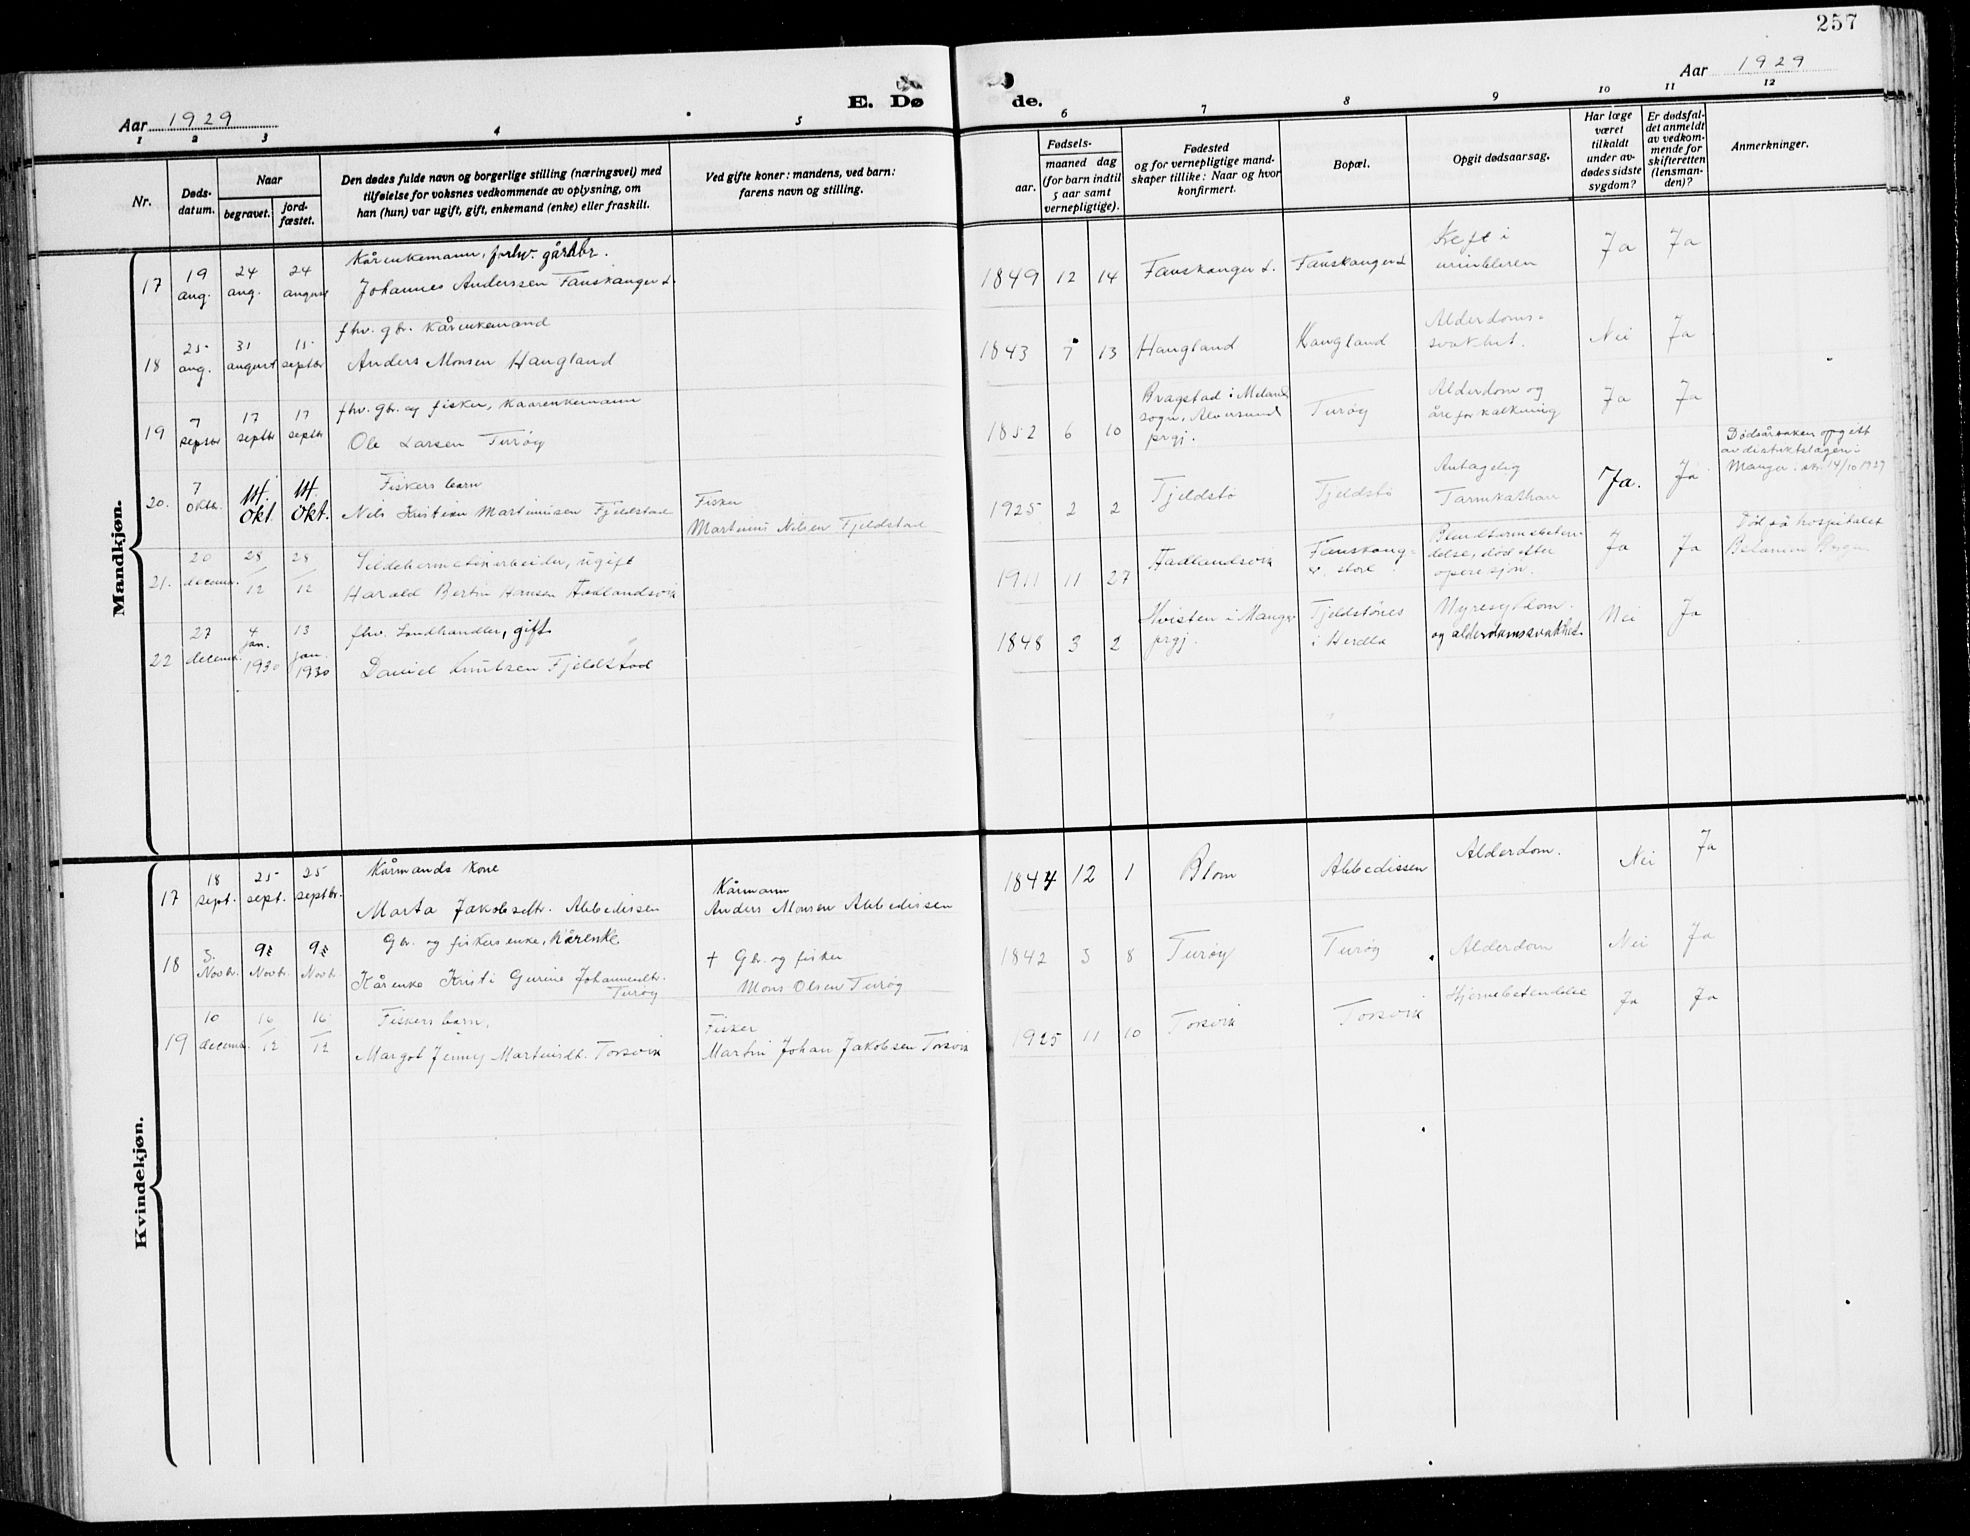 257
Aar 1929
E. Dø
de.
Aar 1929
1 2 3 4 5 6 7 8 9 10 11 12
Nr.
Døds-
datum.
Naar
begravet.
jord-
fæstet.
Den dødes fulde navn og borgerlige stilling (næringsvei) med
tilføielse for voksnes vedkommende av oplysning, om
han (hun) var ugift, gift, enkemand (enke) eller fraskilt.
Ved gifte koner: mandens, ved barn:
farens navn og stilling.
Fødsels-
aar.
maaned dag
(for barn indtil
5 aar samt
vernepligtige).
Fødested
og for vernepligtige mand-
skaper tillike: Naar og hvor
konfirmert.
Bopæl.
Opgit dødsaarsag.
Har læge
været
tilkaldt
under av-
dødes sidste
sygdom?
Er dødsfal-
det anmeldt
av vedkom-
mende for
skifteretten
(lensman-
den)?
Anmerkninger.
Mandkjøn.
17
19
aug.
24
aug.
24
august
Kårenkemann, forhv. gårdbr.
Johannes Anderssen Fauskanger L.
1849 12 14
Fauskanger L.
Fauskanger L
Kreft i
urinblæren
Ja
Ja
18
25
aug.
31
august
15
septbr
fhv. gbr. kårenkemand
Anders Monsen Haugland
1843 7 13
Haugland
Haugland
Alderdoms-
svakhet.
Nei
Ja
19
7
septbr
17
septbr
17
septbr
fhv. gbr. og fisker, kaarenkemann
Ole Larsen Turøy
1852 6 10
Bragstad i Meland
sogn, Alversund
prgj.
Turøy
Alderdom og
åreforkalkning
Ja
Ja
20.
7
oktbr.
14.
okt.
14.
okt.
Fiskers barn
Nels Kristian Martinusen Fjeldstad
Fisker
Martinus Nilsen Fjeldstad
1925 2 2
Tjeldstø
Tjeldstø
Antagelig
Tarmkathar
Ja.
Ja
Dødsårsaken opgitt
av distriktslægen i
Manger. skr. 14/10 1929
21.
20
decemr.
28/12
28/12
Sildehermetikarbeider, ugift
Harald Bertin Hansen Hadlandsvik
1911 11 27
Hadlandsvik
Fauskang-
er, store
Blindtarmsbeten-
delse, død efter
operasjon.
Ja
Ja
Død på hospitalet
22
27
decemr.
4
jan.
1930
13
jan.
1930
fhv. Landhandler, gift
Daniel Knutsen Fjeldstad
1848 3 2
Hvisten i Manger
prgj.
Tjeldstönes
i Herdla
Nyresykdom.
og alderdomssvakhet.
Nei
Ja
Kvindekjøn.
17
18
sept.
25
sept.
25
septbr.
Kårmands kone
Marta Jakobsdtr. Abbedissen
Kårmann
Anders Monsen Abbedissen
1844 12 1
Blom
Abbedissen
Alderdom.
Nei
Ja
18
3.
Novb.
9de
Novbr.
9de
Novbr.
Gbr. og fiskers enke, kårenke
Kårenke Kristi Gurine Johannesdtr.
Turøy
+ Gbr. og fisker
Mons Olsen Turøy
1842 5 8
Turøy
Turøy
Alderdom
Nei
Ja
19
10
decemr.
16/12
16/12
Fiskers barn,
Margot Jenny Martinsdt. Torsvik
Fisker
Martin Johan Jakobsen Torsvik
1925 11 10
Torsvik
Torsvik
Hjernebetendelse
Ja
Ja